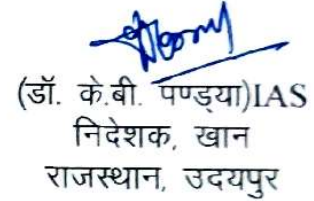 (डॉ. के.बी. पण्ड्या)IAS
निदेशक, खान
राजस्थान, उदयपुर